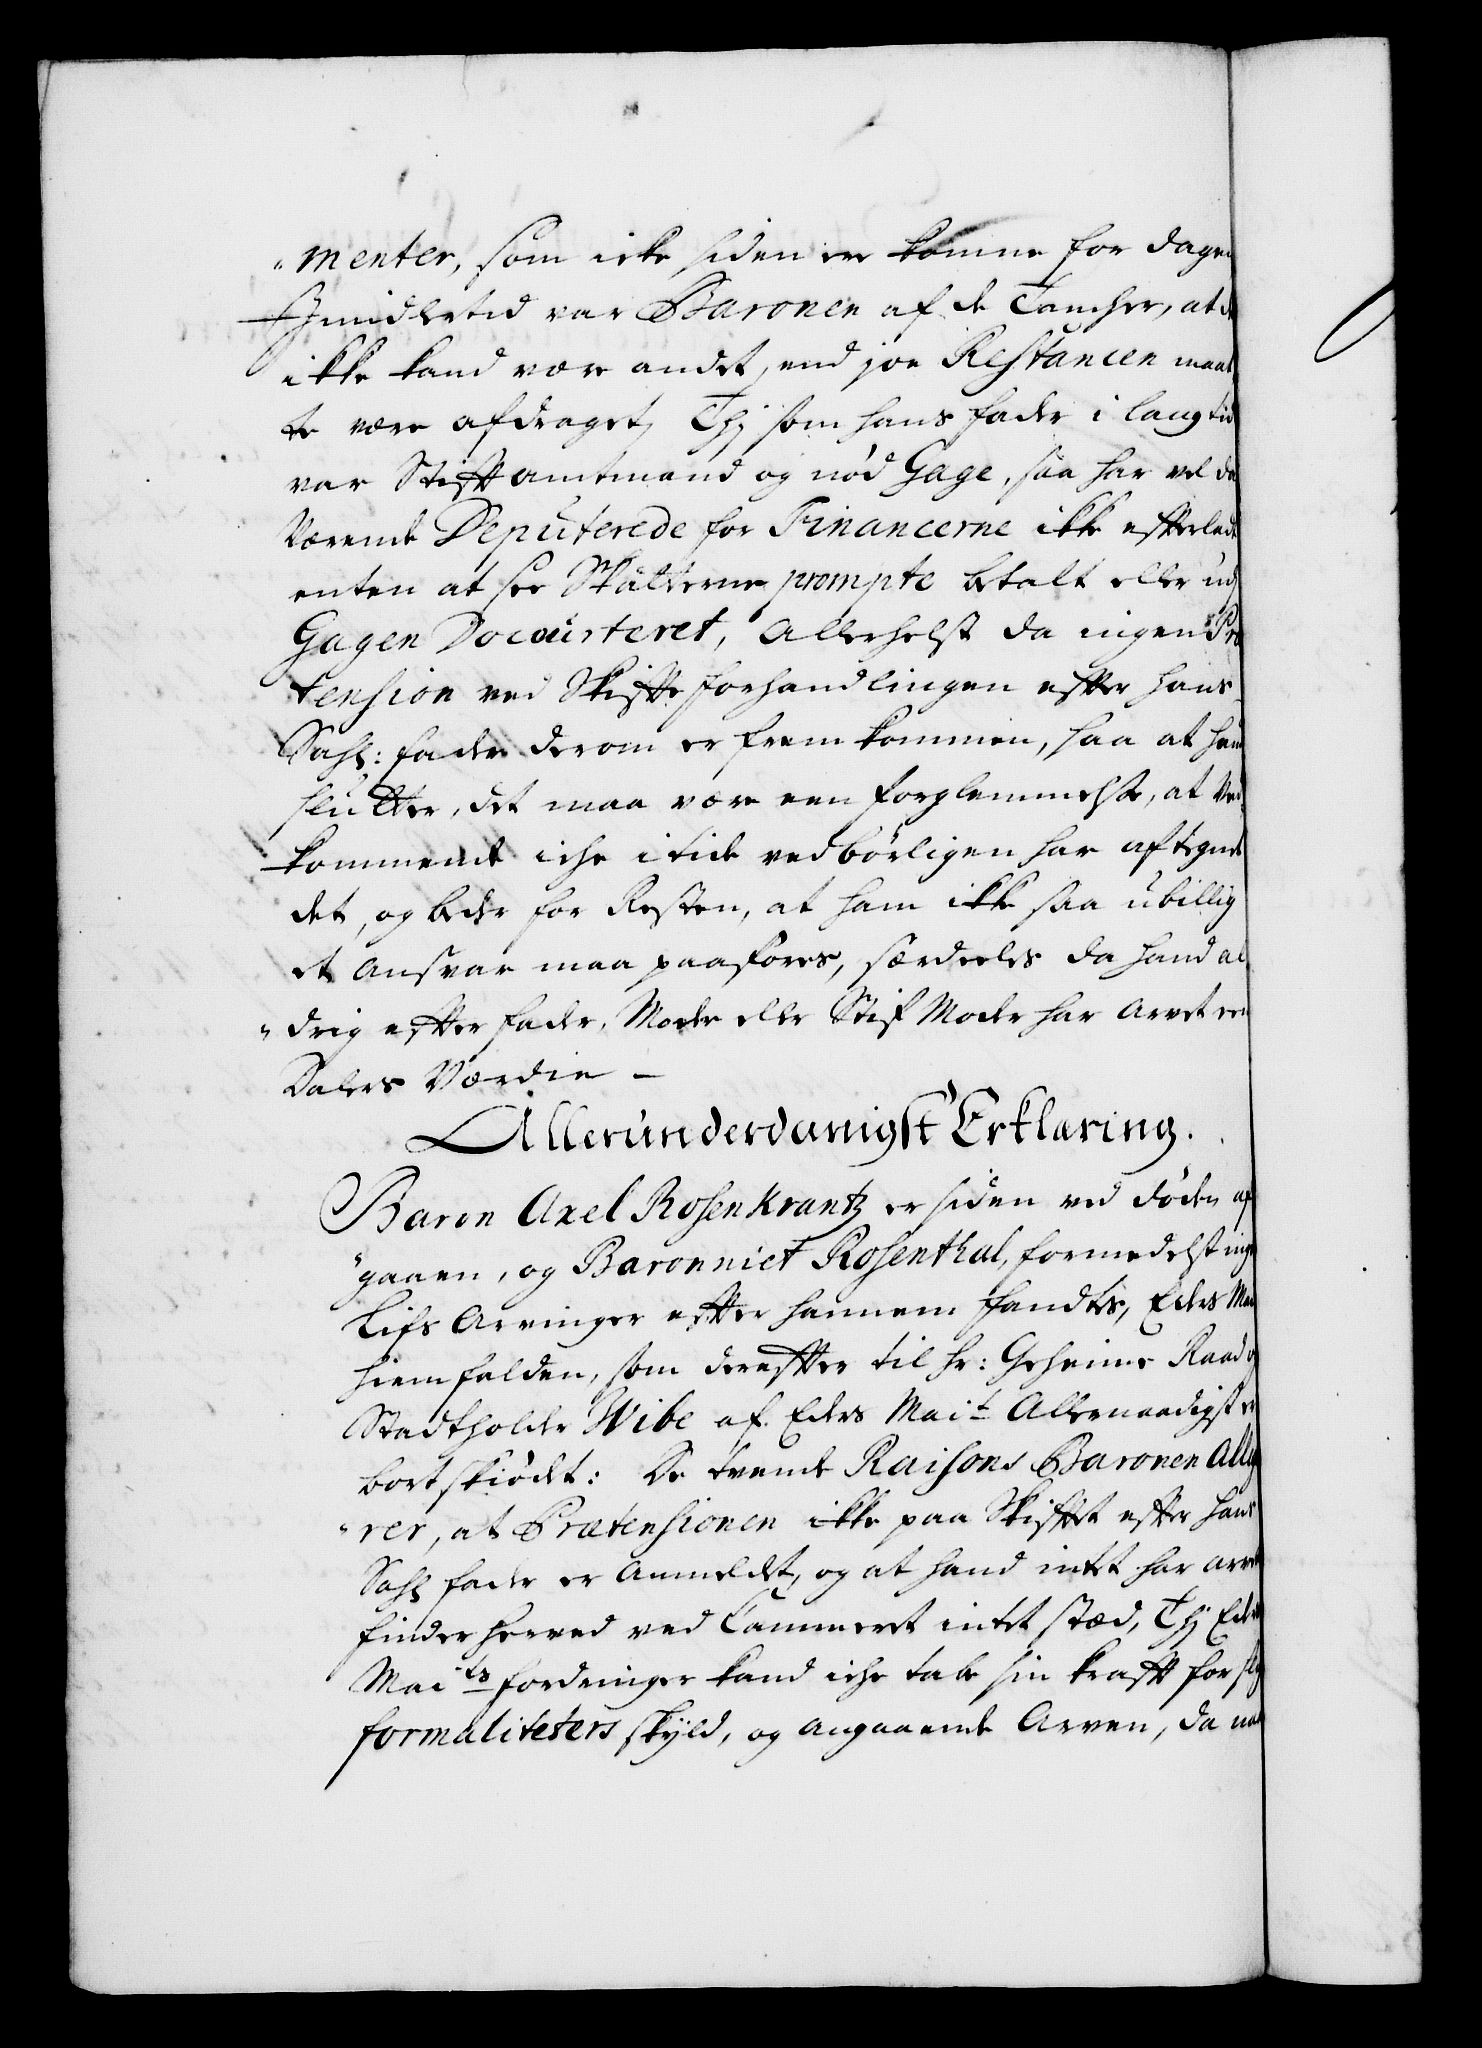 "menter, som icke siden ere komne for dagen
Imidlertid var Baronen af de Tancher, at de
ikke kand være andet, end joe Restancen maat
te være afdraget, Thj som hans fader i lang tid
var Stifftamtmand og nød Gage, saa har vel da
Værende Deputerede for Financerne ikke efterladt
enten at see Skatterne prompte betalt eller ud
Gagen Decourteret, Allerhelst da ingen Præ
tension ved Skiffte forhandlingen effter hans
Sahl: fader derom er frem kommen, saa at hand
slutter, det maa være een forglemmelse, at Ved
kommende iche i tide vedbørligen har aftegnet
det, og beder for Resten, at ham ikke saa ubillig
et Ansvar maa paaføres, særdeeles da hand al
"drig effter fader, Moder eller Stif Moder har Arvet een
Dalers Værdie –
Allerunderdanigst Erklæring.
Baron Axel Rosenkrantz er siden ved døden af
"gaaen, og Baronniet Rosenthal, formedelst ingen
Lifs Arvinger effter hannem fandtes, Eders Mai
hiemfalden, som dereffter til hr: Geheime Raad og
Stadtholder Wibe af Eders Mai.t Allernaadigst er
bortskiødt: De tvende Raisons Baronen Alleg
"rer, at Prætensionen ikke paa Skifftet effter hans
Sahl fader er Anmeldt, og at hand intet har arvet
finder herved ved Cammeret intet stæd, Thj Eders
Mai.ts fordringer kand iche tabe sin krafft for slig
formaliteters skyld, og angaaende Arven, da